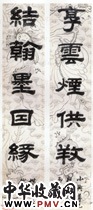 享雲煙供養
結翰墨因緣
中华收藏网
WWW.PMV.CN